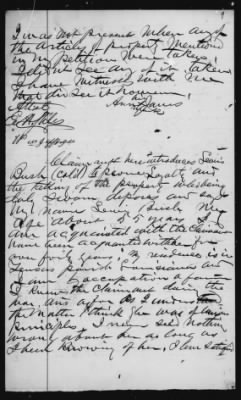 I was not present when any of
the articles of property mention
in my petition were taken
I did not see any of it taken
I have witnesses with me
that did see it however
Attest
Ann
mark
Claimant here introduces Lewis
Bush (Cold) to prove Loyalty and
the taking of the property who being
duly Sworn deposes and says
My name Lewis Bush My
age about 55 years I am
acquainted with the Claimant
have been acquainted with her for
over forty years. My residence is in
Parish Louisiana and
I am by occupation a farmer
I knew the Claimant during the
war. And as far as I understand
the matter I think she was of union
principles, I never seen nothing
wrong about her as long as
I been knowing of her, I am